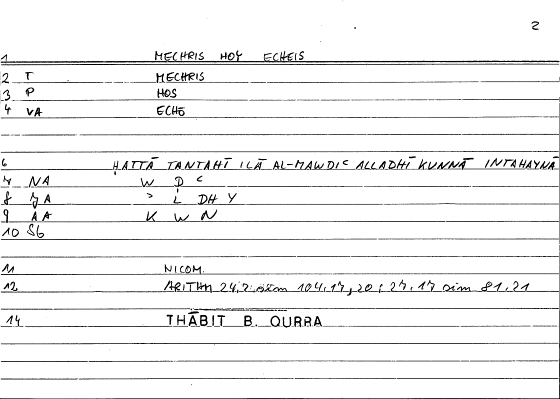 2
1 MECHRIS HOY ECHEIS
2 T MECHRIS
3 P HOS
4 VA ECHŌ
6 ḤATTĀ TANTAHĪ ILĀ AL-MAWḌIᶜ ALLADHĪ KUNNĀ INTAHAYNĀ
7 NA W Ḍ ᶜ
8 JA ʾ L DH Y
9 AA K W N
10 Sb
11 NICOM.
12 ARITHM 24,2 sim 104.17,20; 27.17 sim 81.21
14 THĀBIT B. QURRA